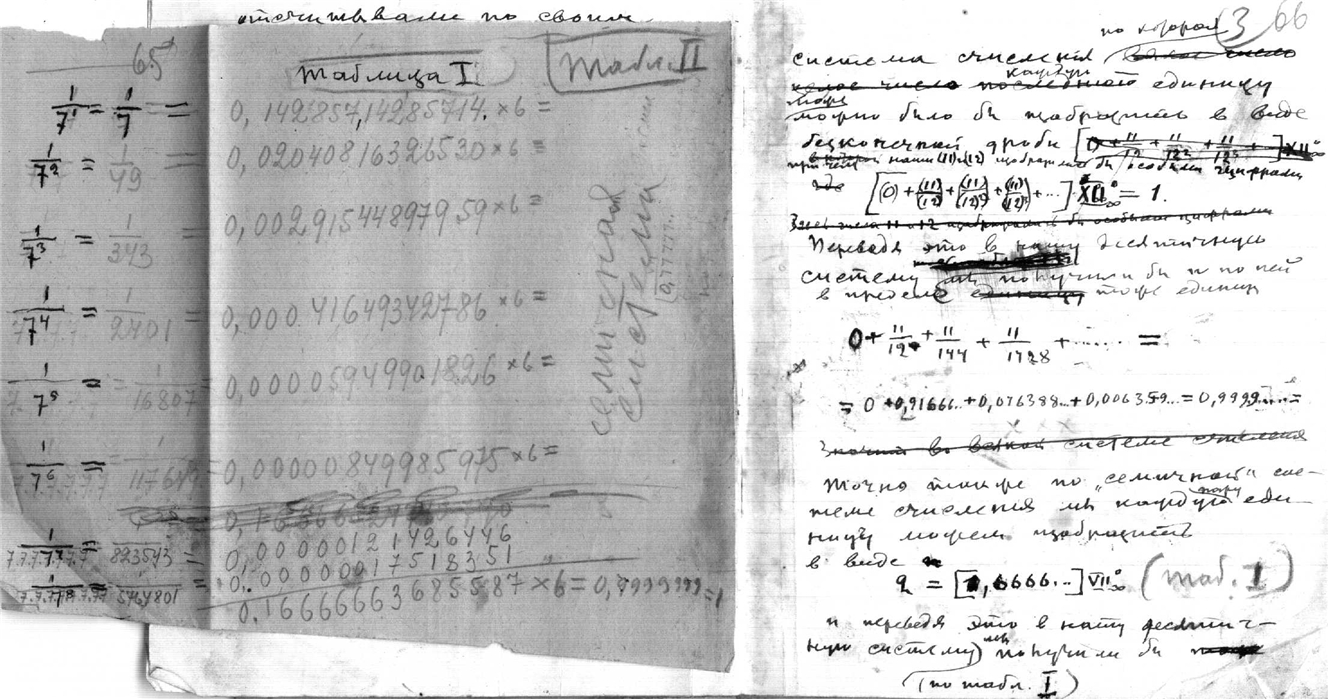 отсчитывали по своим
65
Таблица I
Табл. II
1/7¹ = 1/7 = 0,142857,14285714. × 6 =
1/7² = 1/49 = 0,02040816326530 × 6 =
1/7³ = 1/343 = 0,00291544897959 × 6 =
1/7⁴ = 1/2401 = 0,00041649342786 × 6 =
1/7⁵ = 1/16807 = 0,00005949901826 × 6 =
1/7⁶ = 1/117649 = 0,00000849985975 × 6 =
1/7.7.7.7.7.7.7 = 1/823543 = 0,00000121426446
1/7⁸ = 1/5764801 = 0,00000017518351
0,16666663685587 × 6 = 0,9999999 = 1
семичная
система
0,77777...
3 66
по которой
система счисления
каждую
единицу
можно было бы изобразить в виде
бесконечной дроби [0 + 11/12 + 11/12² + 11/12³ + ] XII
при чем наши (11) и (12) изобразили бы особыми цифрами
[(0) + (11)/(12) + (11)/(12)² + (11)/(12)³ + ...] XII = 1.
Переведя это в нашу десятичную
систему мы получили бы и по ней
в пределе единицу тоже единицу
0 + 11/12 + 11/144 + 11/1728 + ...... =
= 0 + 0,91666.. + 0,076388.. + 0,006359... = 0,9999..... =
Значит во всякой системе счисления
Точно также по „семичной“ сис-
теме счисления мы каждую еди-
ницу можем изобразить
в виде
q = [0,6666...] VII (таб. I)
и переведя это в нашу десятич-
ную систему, мы получили бы
(по табл. I)